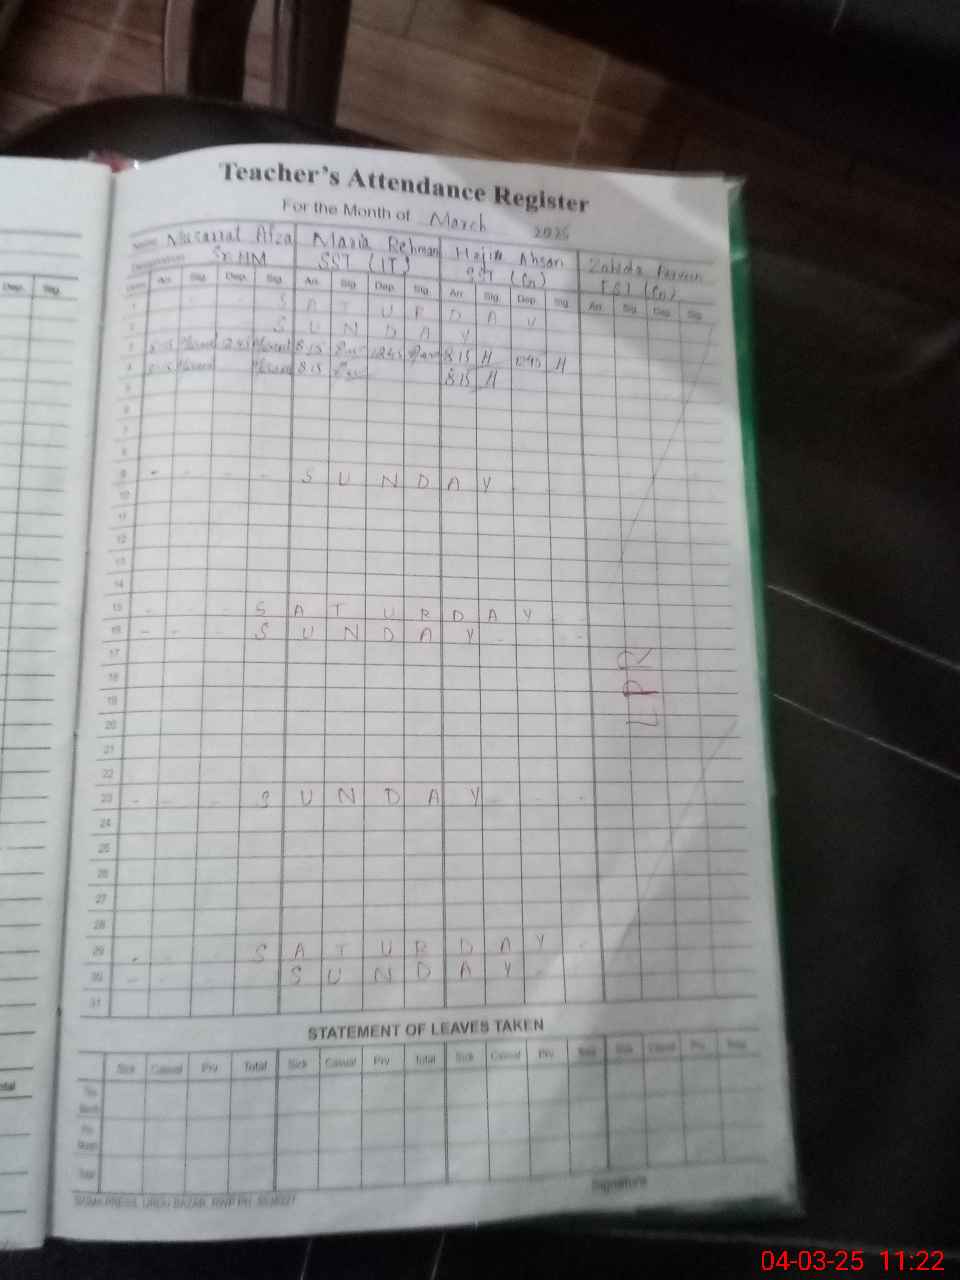 Teacher's Attendance Register
For the Month of March 2025
Name Musarrat Afza Maria Rehman Ahsan Zahida Parveen
Designation Sr. HM SST (IT) SST (Gn)
Arr. Sig. Dep. Sig. Arr. Sig. Dep. Sig. Arr. Sig. Dep. Sig. Arr. Sig. Dep. Sig.
1 S A T U R D A Y
2 S U N D A Y
3 8.15 1245 8.15 H 1240 H
4 8.15 8.15 H
5
6
7
8
9 S U N D A Y
10
11
12
13
14
15 S A T U R D A Y
16 S U N D A Y
17
18
19
20
21
22
23 S U N D A Y
24
25
26
27
28
29 S A T U R D A Y
30 S U N D A Y
31
LPR
STATEMENT OF LEAVES TAKEN
Sick Casual Prv Total Sick Casual Prv Total Sick Casual Prv Sick Casual Prv
Total
Signature
URDU BAZAR, RWP PH:
04-03-25 11:22